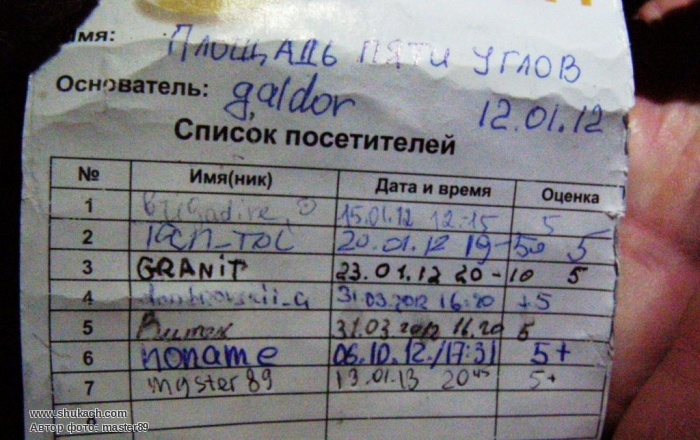 Имя: Площадь пяти углов
Основатель: galdor 12.01.12
Список посетителей
№ Имя(ник) Дата и время Оценка
1 15.01.12 12:15 5
2 20.01.12 19-50 5
3 GRANIT 23.01.12 20-10 5
4 31.03.2012 16:20 +5
5 Витек 31.03 2012 16.20 5
6 noname 06.10.12./17:31 5+
7 myster89 13.01.13 20 45 5+
8
www.shuksch.com
Автор фото: master89